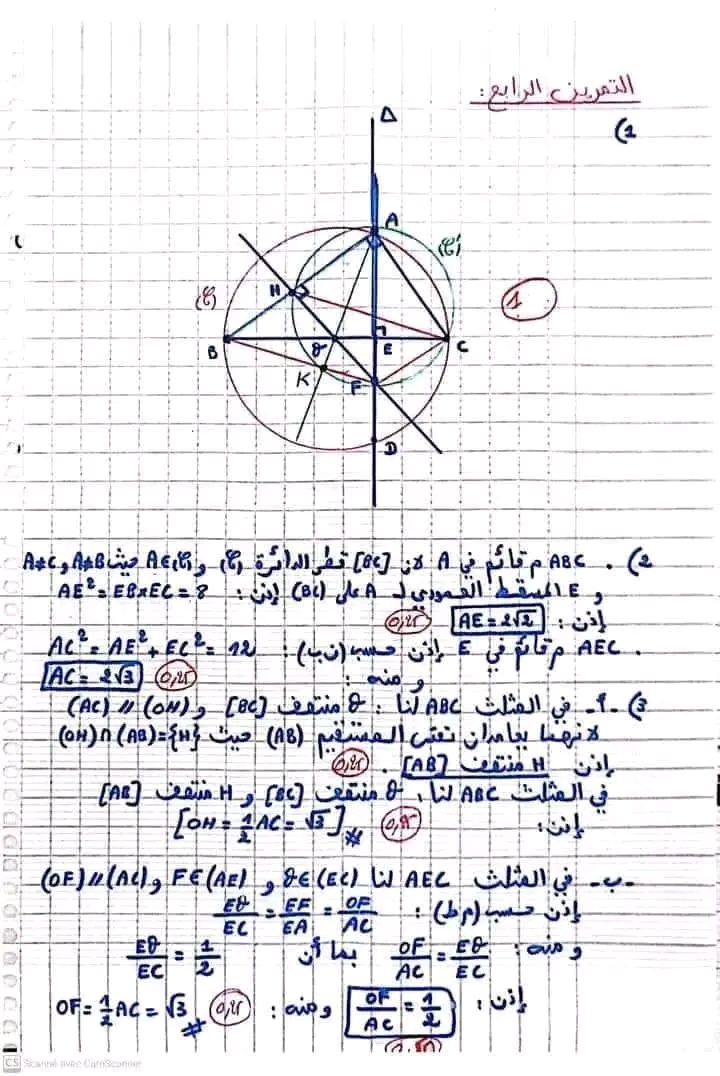 التمرين الرابع:
1)
Δ
A
(C')
(C)
H
1
B
O
E
C
K
F
D
2) . ABC م قائم في A لان [BC] قطر الدائرة (C) و A∈(C) حيث A≠B و A≠C
و E المسقط العمودي لـ A على (BC) إذن: AE² = EB×EC = 8
إذن: AE = 2√2 0,25
. AEC م قائم في E إذن حسب (ن ب): AC² = AE² + EC² = 12
و منه: AC = 2√3 0,25
3) - أ - في المثلث ABC لنا: O منتصف [BC] و (OH) // (AC)
لانهما يعامدان نفس المستقيم (AB) حيث (OH)∩(AB)={H}
إذن H منتصف [AB]. 0,25
في المثلث ABC لنا: O منتصف [BC] و H منتصف [AB]
إذن: [OH = 1/2 AC = √3] # 0,25
- ب - في المثلث AEC لنا O∈(EC) و F∈(AE) و (OF)//(AC)
إذن حسب (م ط): EO/EC = EF/EA = OF/AC
و منه: OF/AC = EO/EC بما أن EO/EC = 1/2
إذن: OF/AC = 1/2 و منه: 0,25 OF = 1/2 AC = √3 #
CS Scanné avec CamScanner